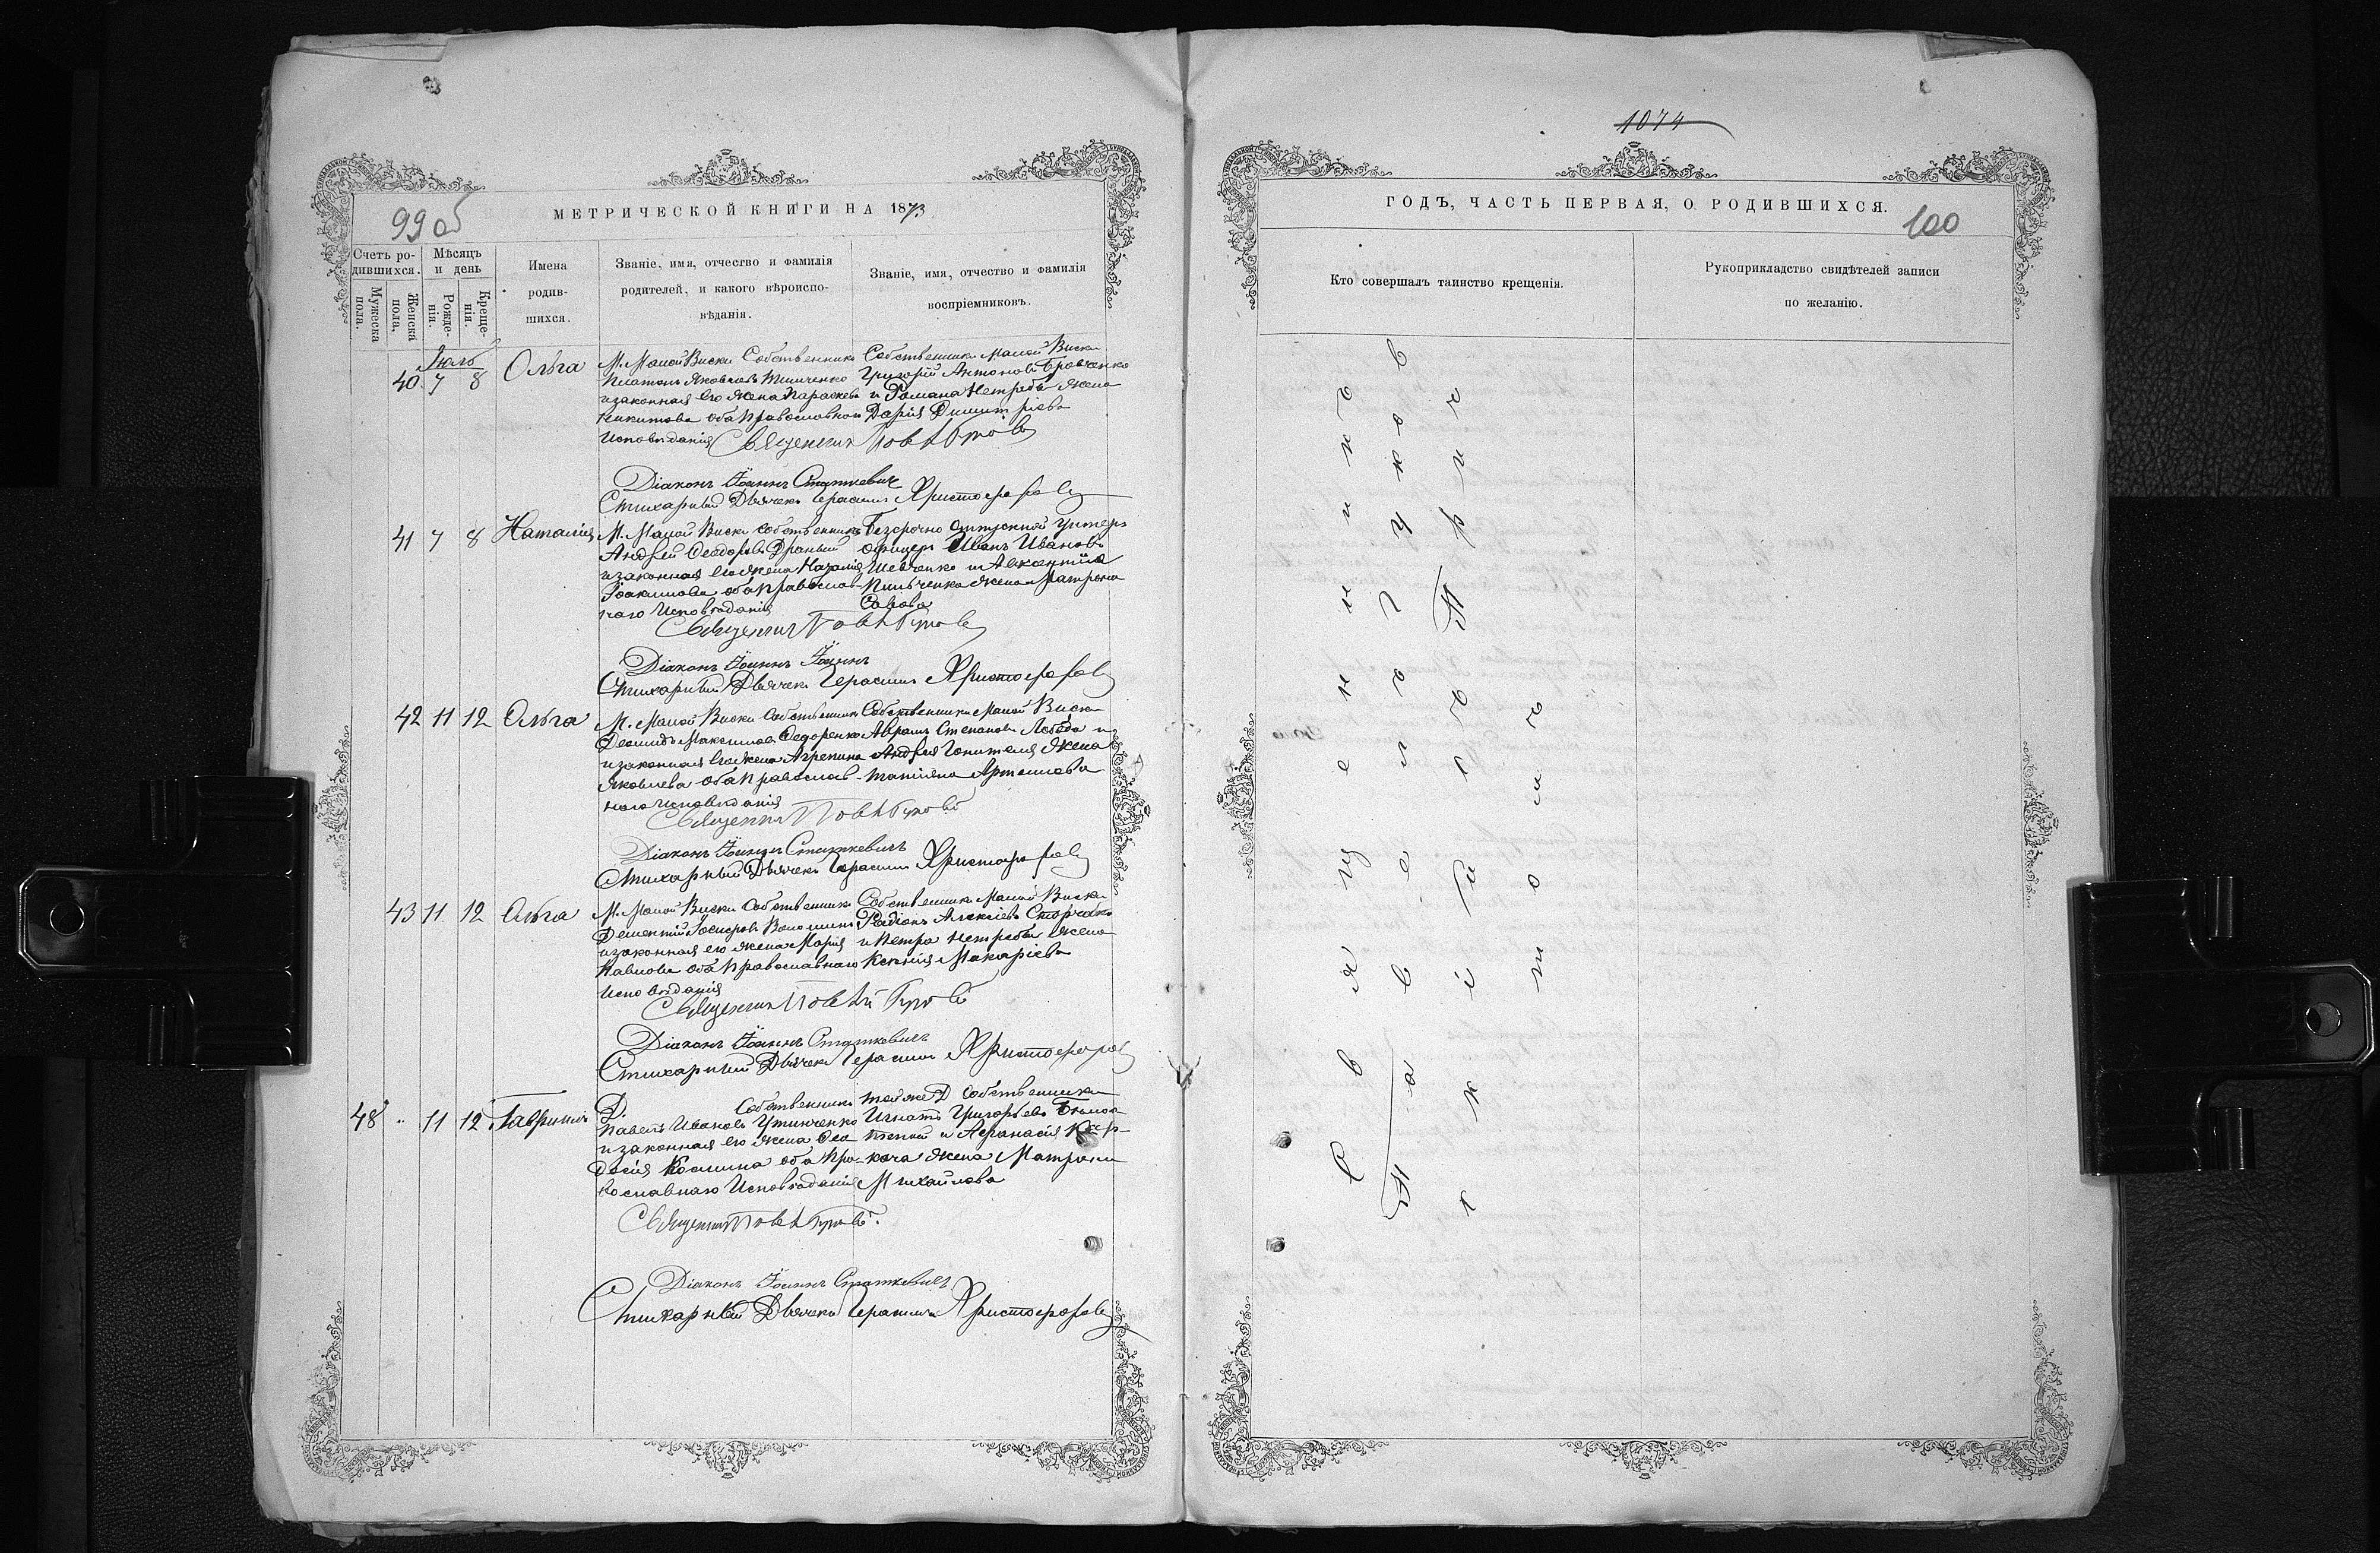 99об
МЕТРИЧЕСКОЙ КНИГИ НА 1873
Счетъ ро-
дившихся.
Мужеска
пола.
Женска
пола.
Мѣсяцъ
и день
Рожде-
нія.
Креще-
нія.
Имена
родив-
шихся.
Званіе, имя, отчество и фамилія
родителей, и какого вѣроиспо-
вѣданія.
Званіе, имя, отчество и фамилія
воспріемниковъ.
Іюль
40 7 8 Ольга
М. Малой Виски Собственникъ
Платонъ Яковлевъ Тимченко
и законная его жена Параскева
Никитова оба православнои
Исповѣданія
Собственники Малой Виски
Григорій Антоновъ Бровченко
и Романа Нетребы жена
Дарія Димитріева
Священникъ
Діаконъ Іоаннъ Статкевичъ
Стихарный Дьячекъ Герасимъ Христофоровъ
41 7 8 Наталія
М. Малой Виски Собственникъ
Андрей Феодоровъ
и законная его жена
Іоакимова оба православ-
наго Исповѣданія
Безсрочно отпускной унтеръ
офицеръ Иванъ Ивановъ
Шевченко и Авксентія
жена Матрона
Саввова
Священникъ
Діаконъ Іоаннъ Іоаннъ
Стихарный Дьячекъ Герасимъ Христофоровъ
42 11 12 Ольга
М. Малой Виски Собственникъ
Леонидъ Максимовъ Федоренко
и законная его жена Агрепина
Яковлева оба православ-
наго исповѣданія
Собственники Малой Виски
Аврамъ Степановъ Лебеда и
Андрея жена
Татіяна Артемова
Священникъ
Діаконъ Іоаннъ Статкевичъ
Стихарный Дьячекъ Герасимъ Христофоровъ
43 11 12 Ольга
М. Малой Виски Собственникъ
Дементій Волошинъ
и законная его жена Марія
Павлова оба православнаго
Исповѣданія
Собственники Малой Виски
Радіонъ Алексіевъ Сторчакъ
и Петра Нетребы жена
Ксенія Макаріева
Священникъ
Діаконъ Іоаннъ Статкевичъ
Стихарный Дьячекъ Герасимъ Христофоровъ
48 " 11 12 Гавріилъ
Д. Собственникъ
Павелъ Ивановъ Устименко
и законная его жена Фео-
досія Космина оба пра-
вославнаго Исповѣданія
той же Д. Собственники
Игнатъ Григорьевъ
и Афанасія
жена Матрона
Михайлова
Священникъ
Діаконъ Іоаннъ Статкевичъ
Стихарный Дьячекъ Герасимъ Христофоровъ
1074
ГОДЪ, ЧАСТЬ ПЕРВАЯ, О РОДИВШИХСЯ.
100
Кто совершалъ таинство крещенія.
Рукоприкладство свидѣтелей записи
по желанію.
Священникъ
Павелъ
съ причтомъ